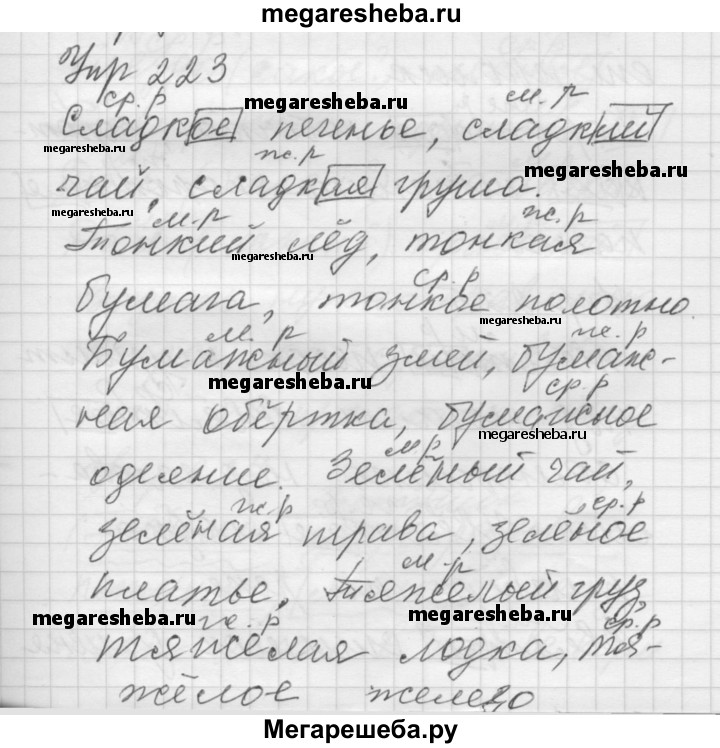 megaresheba.ru
Упр 223
ср. р м. р
Сладкое печенье, сладкий
megaresheba.ru
megaresheba.ru megaresheba.ru
ж. р
чай, сладкая груша.
megaresheba.ru м. р ж. р
Тонкий лёд, тонкая
megaresheba.ru
ср. р
бумага, тонкое полотно.
megaresheba.ru
м. р ж. р
Бумажный змей, бумаж-
megaresheba.ru ср. р
ная обёртка, бумажное
megaresheba.ru
м р
одеяние. Зелёный чай,
ж. р ср. р
зелёная трава, зелёное
м. р
платье. Тяжелый груз,
megaresheba.ru megaresheba.ru
ж. р ср. р
тяжелая лодка, тя-
жёлое железо
Мегарешеба.ру